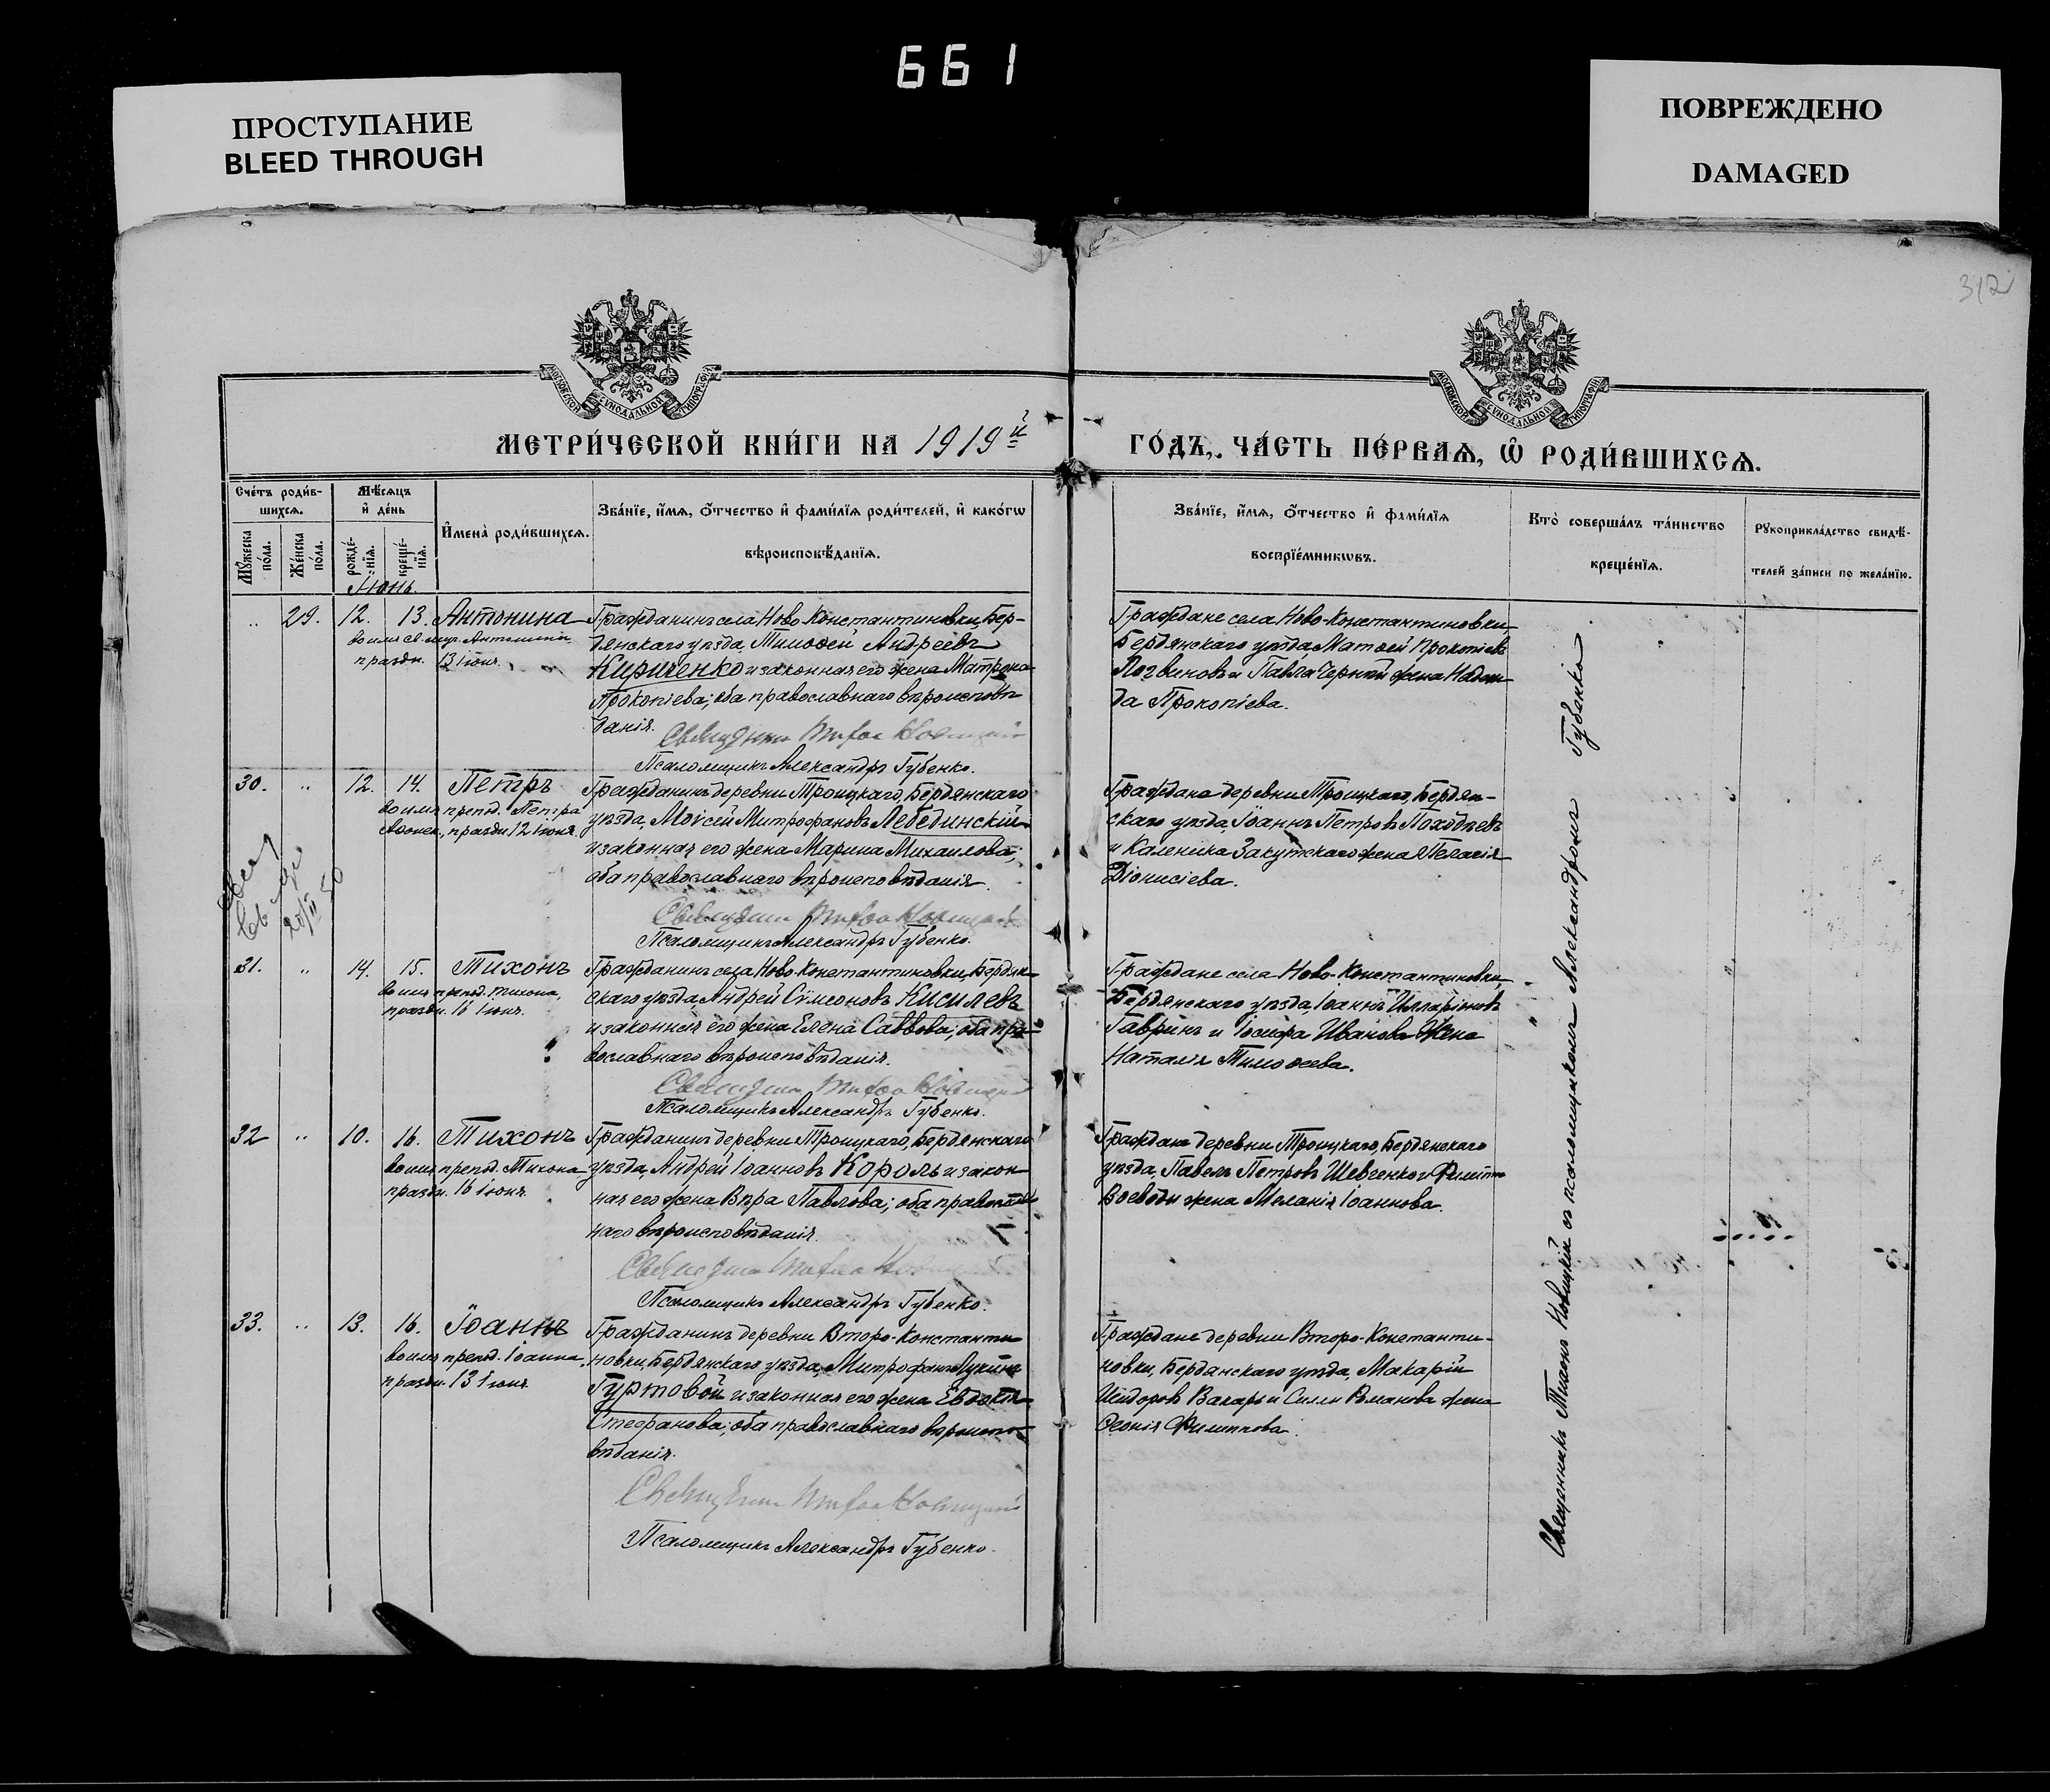 661
ПРОСТУПАНИЕ
BLEED THROUGH
ПОВРЕЖДЕНО
DAMAGED
312
МОСКОВСКОЙ СѴНОДАЛЬНОЙ ТИПОГРАФІИ
МОСКОВСКОЙ СѴНОДАЛЬНОЙ ТИПОГРАФІИ
МЕТРИ́ЧЕСКОЙ КНИ́ГИ НА 1919й
ГО́ДЪ, ЧА́СТЬ ПЕ́РВАѦ, Ѡ҆ РОДИ́ВШИХСѦ.
Сче́тъ роди́в-
шихсѧ.
Мꙋ́жеска по́ла.
Же́нска по́ла.
Мѣ́сѧцъ
и҆ де́нь
рожде́-нїѧ.
креще́-нїѧ.
И҆мена̀ роди́вшихсѧ.
Зва́нїе, и҆́мѧ, ѻ҆́тчество и҆ фами́лїѧ роди́телей, и҆ како́гѡ
вѣроисповѣ́данїѧ.
Зва́нїе, и҆́мѧ, ѻ҆́тчество и҆ фами́лїѧ
воспрїе́мникѡвъ.
Кто̀ соверша́лъ та́инство
креще́нїѧ.
Рꙋкоприкла́дство свидѣ́-
телей за́писи по жела́нїю.
Іюнь.
„ 29. 12. 13. Антонина
во имя св. муч. Антонины
праздн. 13 іюня.
Гражданинъ села Ново-Константиновки, Бер-
дянскаго уѣзда Тимоѳей Андреевъ
Кириченко и законная его жена Матрона
Прокопіева; оба православнаго вѣроисповѣ-
данія.
Священникъ Тихонъ Новицкій
Псаломщикъ Александръ Губенко.
Граждане села Ново-Константиновки,
Бердянскаго уѣзда Матѳей Прокопіевъ
Логвиновъ и Павла Черный жена Надеж-
да Прокопіева.
30. „ 12. 14. Петръ
во имя препод. Петра
Аѳонск., праздн. 12 іюня.
Гражданинъ деревни Троицкаго, Бердянскаго
уѣзда, Моісей Митрофановъ Лебединскій
и законная его жена Марина Михаилова;
оба православнаго вѣроисповѣданія.
Священникъ Тихонъ Новицкій
Псаломщикъ Александръ Губенко.
Граждане деревни Троицкаго, Бердян-
скаго уѣзда, Іоаннъ Петровъ Походѣевъ
и Каленика Закутскаго жена Пелагія
Діонисіева.
31. „ 14. 15. Тихонъ
во имя препод. Тихона,
праздн. 16 іюня.
Гражданинъ села Ново-Константиновки, Бердян-
скаго уѣзда, Андрей Сѵмеоновъ Кисилевъ
и законная его жена Елена Саввова; оба пра-
вославнаго вѣроисповѣданія.
Священникъ Тихонъ Новицкій
Псаломщикъ Александръ Губенко.
Граждане села Ново-Константиновки,
Бердянскаго уѣзда, Іоаннъ Илларіоновъ
Гавринъ и Іосифа Иванова жена
Наталія Тимоѳеева.
32 „ 10. 16. Тихонъ
во имя препод. Тихона
праздн. 16 іюня.
Гражданинъ деревни Троицкаго, Бердянскаго
уѣзда, Андрей Іоанновъ Король и закон-
ная его жена Вѣра Павлова; оба православ-
наго вѣроисповѣданія.
Священникъ Тихонъ Новицкій
Псаломщикъ Александръ Губенко.
Граждане деревни Троицкаго, Бердянскаго
уѣзда, Павелъ Петровъ Шевченко и Филиппа
Воеводы жена Меланія Іоаннова.
33. „ 13. 16. Іоаннъ
во имя препод. Іоанна,
праздн. 13 іюня.
Гражданинъ деревни Второ-Константи-
новки, Бердянскаго уѣзда, Митрофанъ Лукинъ
Гуртовой и законная его жена Евдокія
Стефанова; оба православнаго вѣроиспо-
вѣданія.
Священникъ Тихонъ Новицкій
Псаломщикъ Александръ Губенко.
Граждане деревни Второ-Константи-
новки, Бердянскаго уѣзда, Макарій
Исидоровъ Вакарь и жена
Ѳеонія Филиппова.
Священникъ Тихонъ Новицкій съ псаломщикомъ Александромъ Губенко